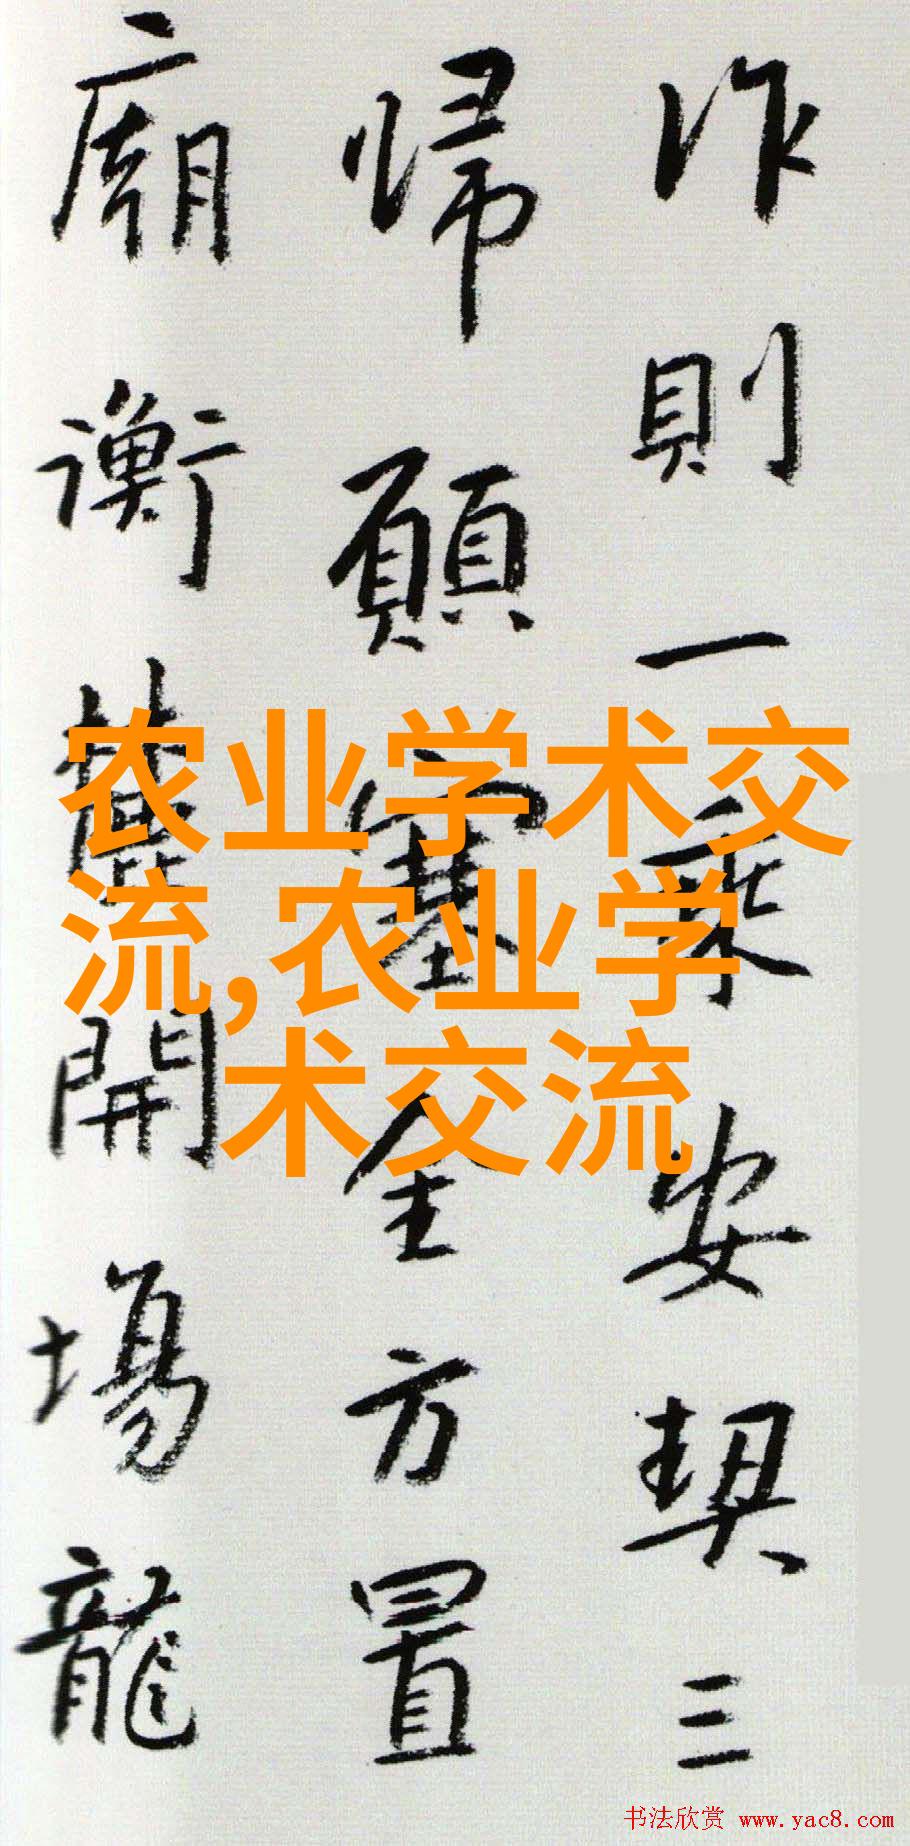 作則一乘安契三
歸願塞全方置
廟衡麓開場龍
农业学术交
流,农业学
术交流
书法欣赏 www.yac8.com